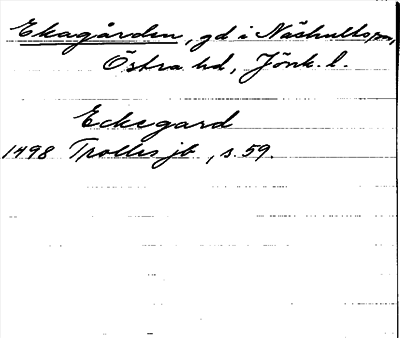 Ekagården, gd i Näshults sn,
Östra hd, Jönk. l.
Eckegard
1498 Trolles jb, s. 59.